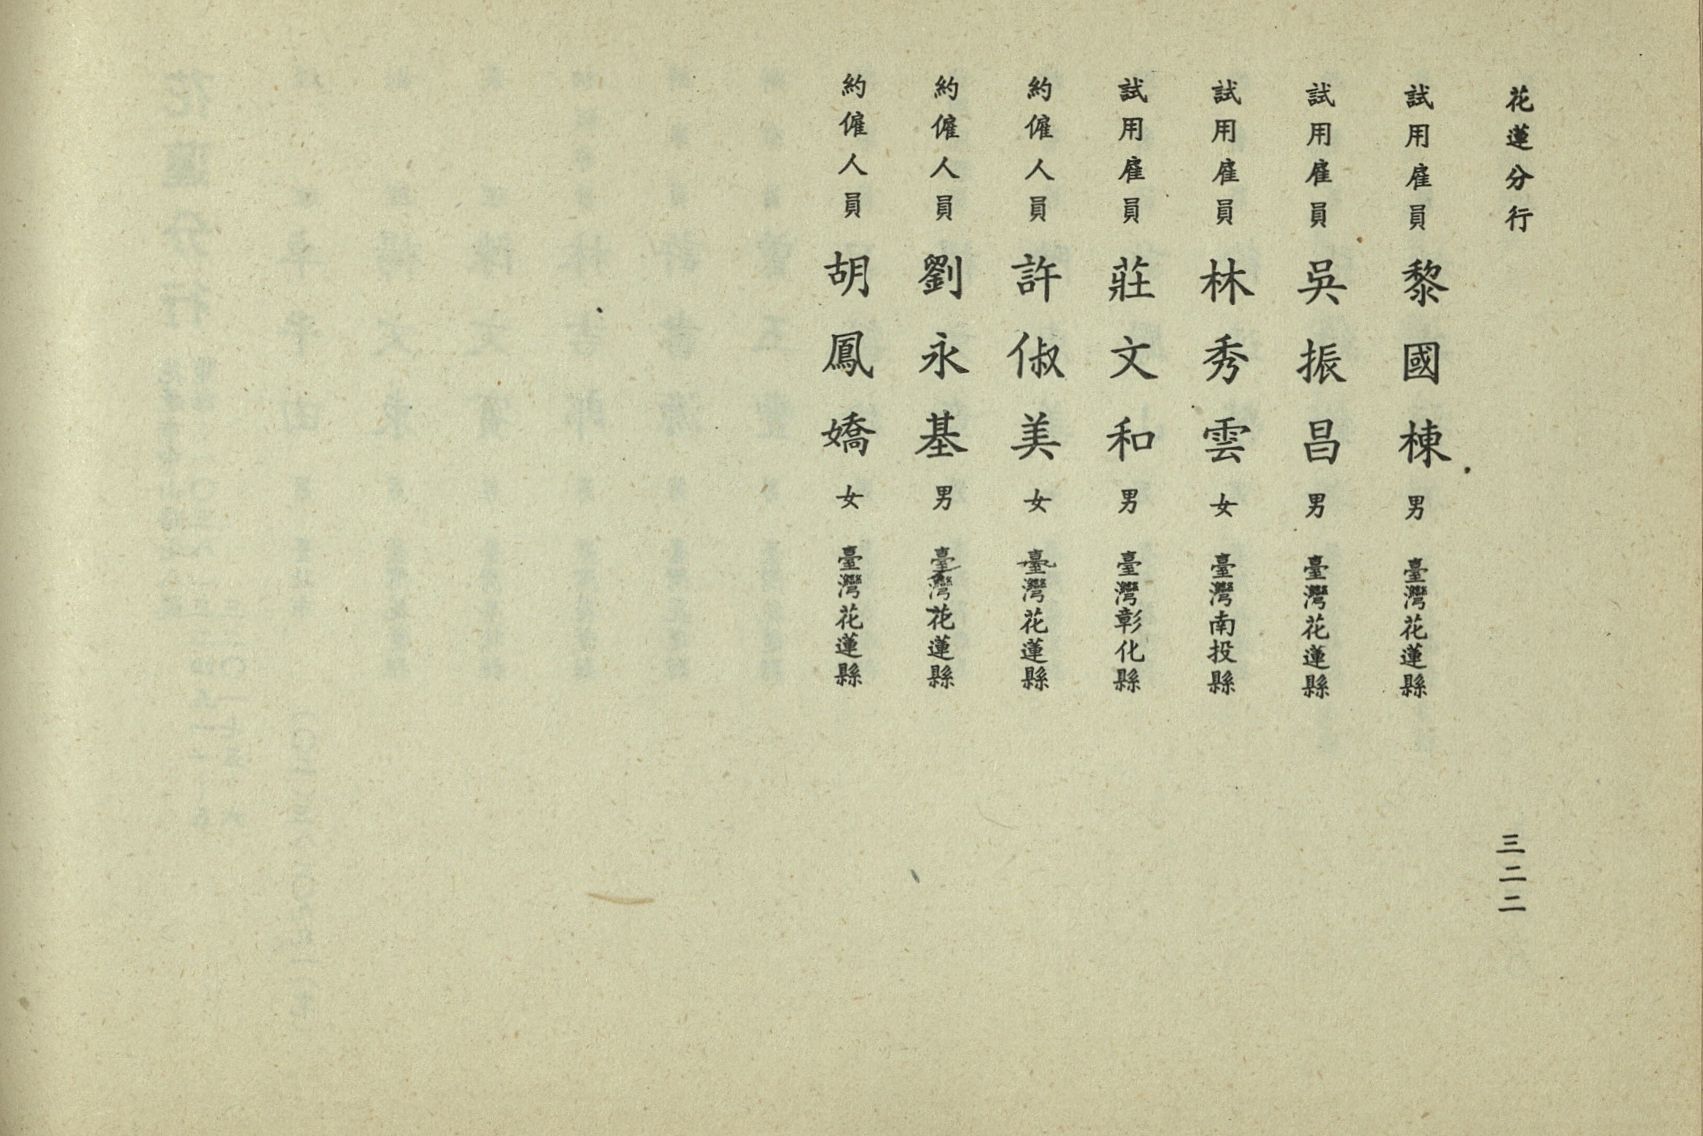 花蓮分行
三二二
試用雇員 黎國棟 男 臺灣花蓮縣
試用雇員 吳振昌 男 臺灣花蓮縣
試用雇員 林秀雲 女 臺灣南投縣
試用雇員 莊文和 男 臺灣彰化縣
約僱人員 許俶美 女 臺灣花蓮縣
約僱人員 劉永基 男 臺灣花蓮縣
約僱人員 胡鳳嬌 女 臺灣花蓮縣